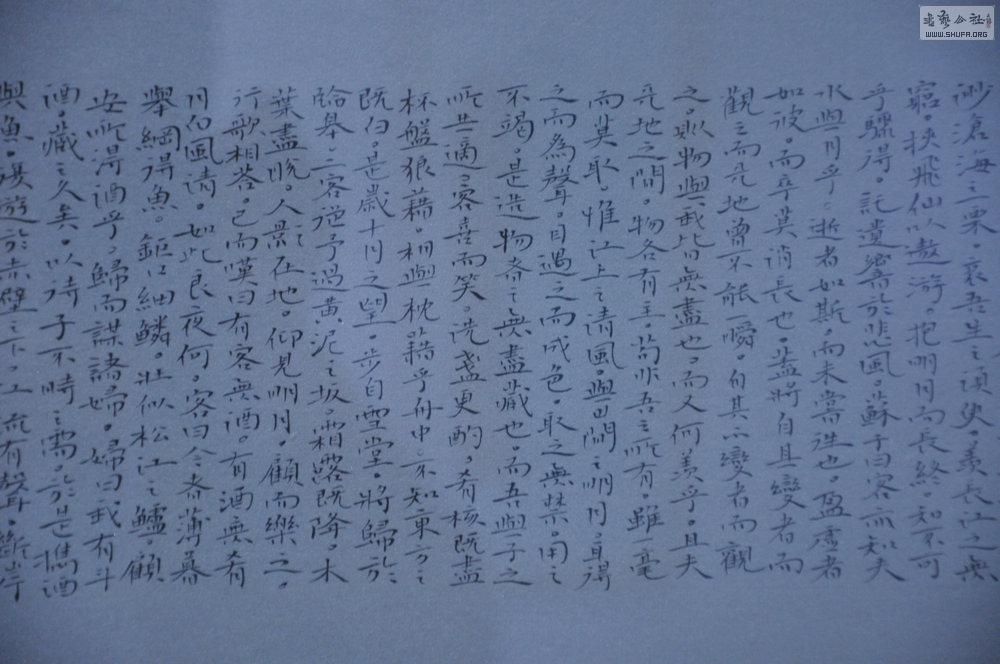 渺滄海之粟。哀吾生之須臾。羨長江之無
窮。挾飛仙以遨游。抱明月而長終。知不可
乎驟得。託遺響於悲風。蘇子曰客亦知夫
水與月乎。逝者如斯。而未嘗逝也。盈虛者
如彼。而卒莫消長也。蓋將自其變者而
觀之而天地曾不能一瞬。自其不變者而觀
之。則物與我皆無盡也。而又何羨乎。且夫
天地之間。物各有主。苟非吾之所有。雖一毫
而莫取。惟江上之清風。與山間之明月。耳得
之而為聲。目遇之而成色。取之無禁。用之
不竭。是造物者之無盡藏也。而吾與子之
所共適。客喜而笑。洗盞更酌。肴核既盡
杯盤狼藉。相與枕藉乎舟中。不知東方之
既白。是歲十月之望。步自雪堂。將歸於
臨皋。二客從予過黃泥之坂。霜露既降。木
葉盡脫。人影在地。仰見明月。顧而樂之。
行歌相答。已而嘆曰有客無酒。有酒無肴
月白風清。如此良夜何。客曰今者薄暮
舉網得魚。鉅口細鱗。壯似松江之鱸。顧
安所得酒乎。歸而謀諸婦。婦曰。我有斗
酒。藏之久矣。以待子不時之需。於是攜酒
與魚。復遊於赤壁之下。江流有聲。斷岸
書藝公社
WWW.SHUFA.ORG